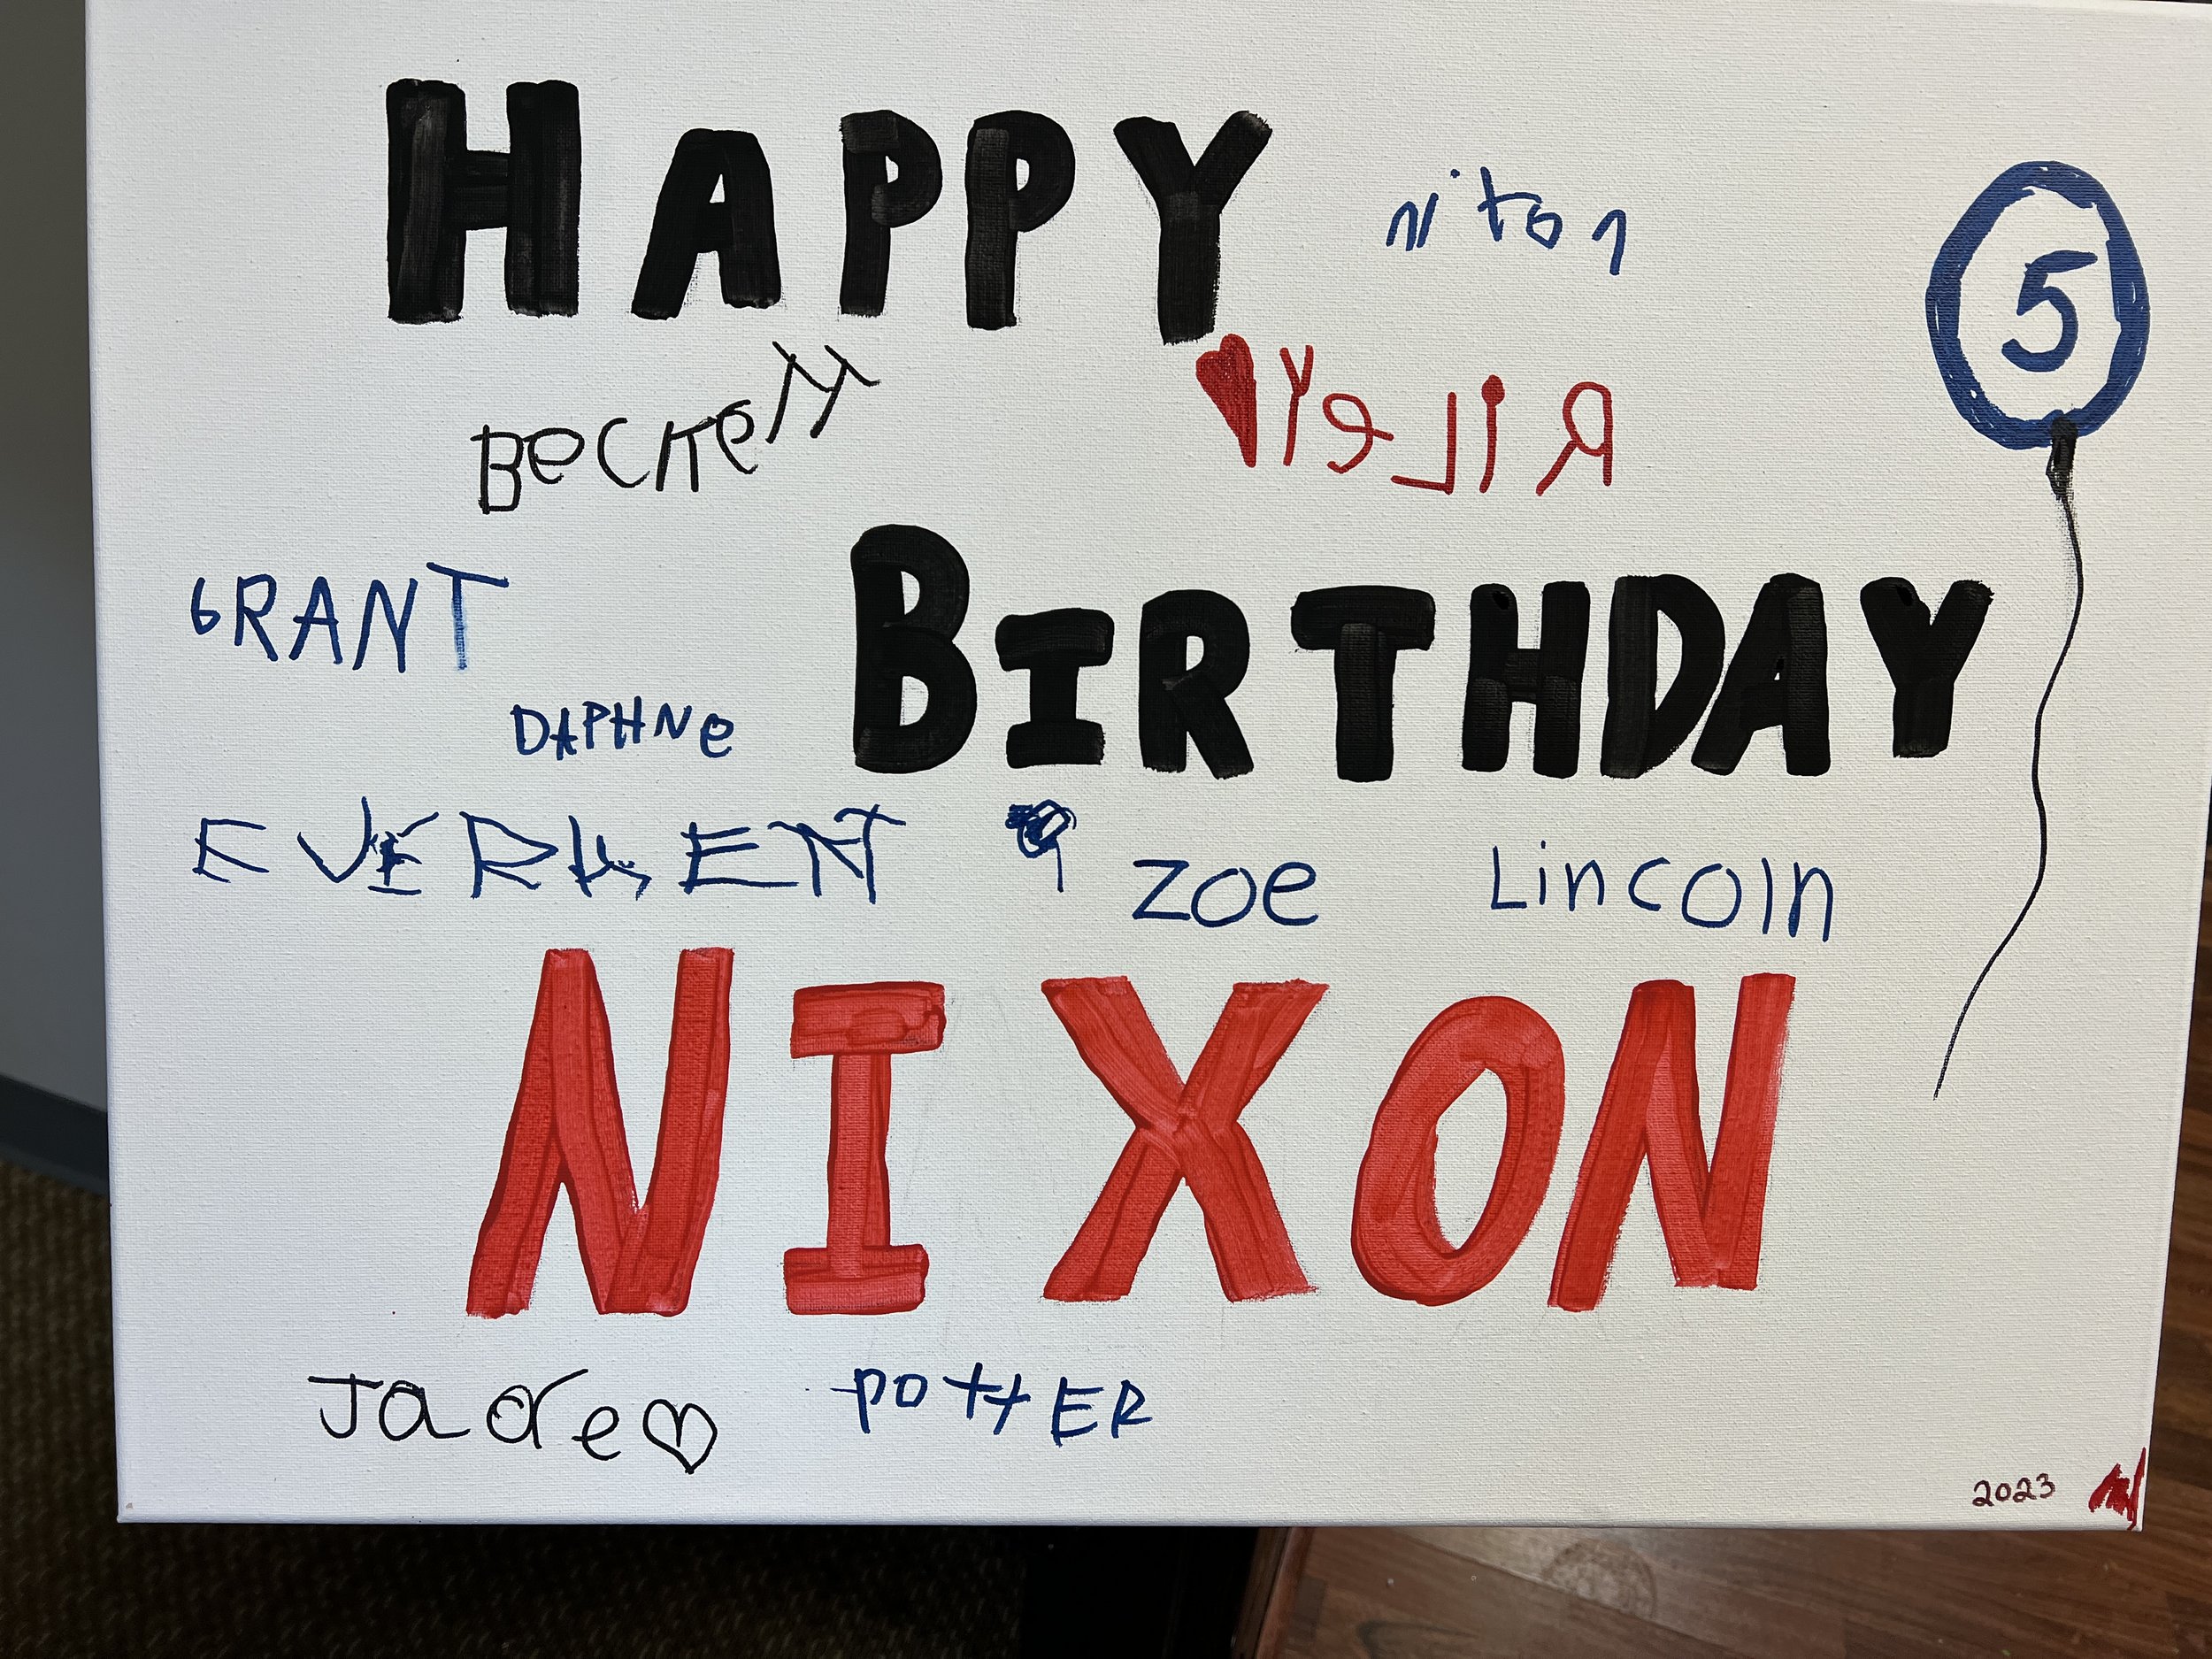 HAPPY
niton
5
BecKeM
RiLeY
GRANT
BIRTHDAY
DAPHNe
EVERKENT
zoe
Lincoln
NIXON
Jade
POttER
2023